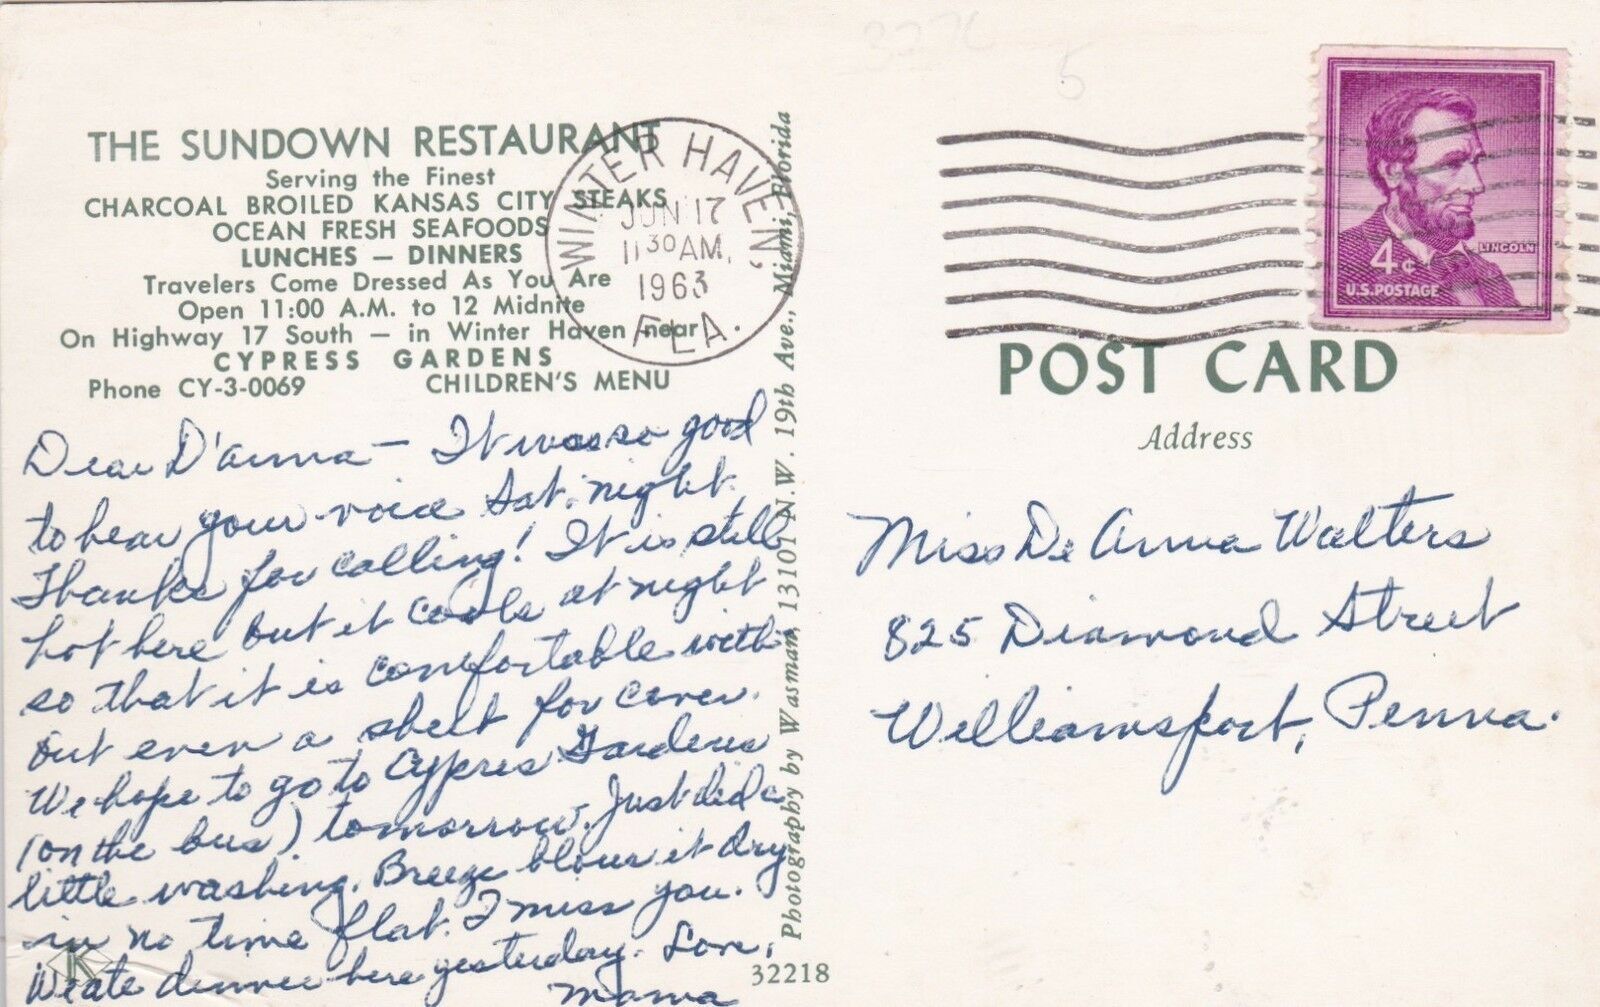 THE SUNDOWN RESTAURANT
Serving the Finest
CHARCOAL BROILED KANSAS CITY STEAKS
OCEAN FRESH SEAFOODS
LUNCHES — DINNERS
Travelers Come Dressed As You Are
Open 11:00 A.M. to 12 Midnite
On Highway 17 South — in Winter Haven near
CYPRESS GARDENS
Phone CY-3-0069 CHILDREN'S MENU
Dear D'anna — It was so good
to hear your voice Sat. night.
Thanks for calling! It is still
hot here but it cools at night
so that it is comfortable with
out even a sheet for cover.
We hope to go to Cypres Gardens
(on the bus) tomorrow. Just did a
little washing. Breeze blows it dry
in no time flat. I miss you.
We ate dinner here yesterday. Love,
Mama
K
Photography by Wasman, 13101 N.W. 19th Ave., Miami, Florida
32218
WINTER HAVEN,
JUN 17
11 30 AM,
1963
FLA.
4¢
LINCOLN
U.S. POSTAGE
POST CARD
Address
Miss De Anna Walters
825 Diamond Street
Williamsport, Penna.
5